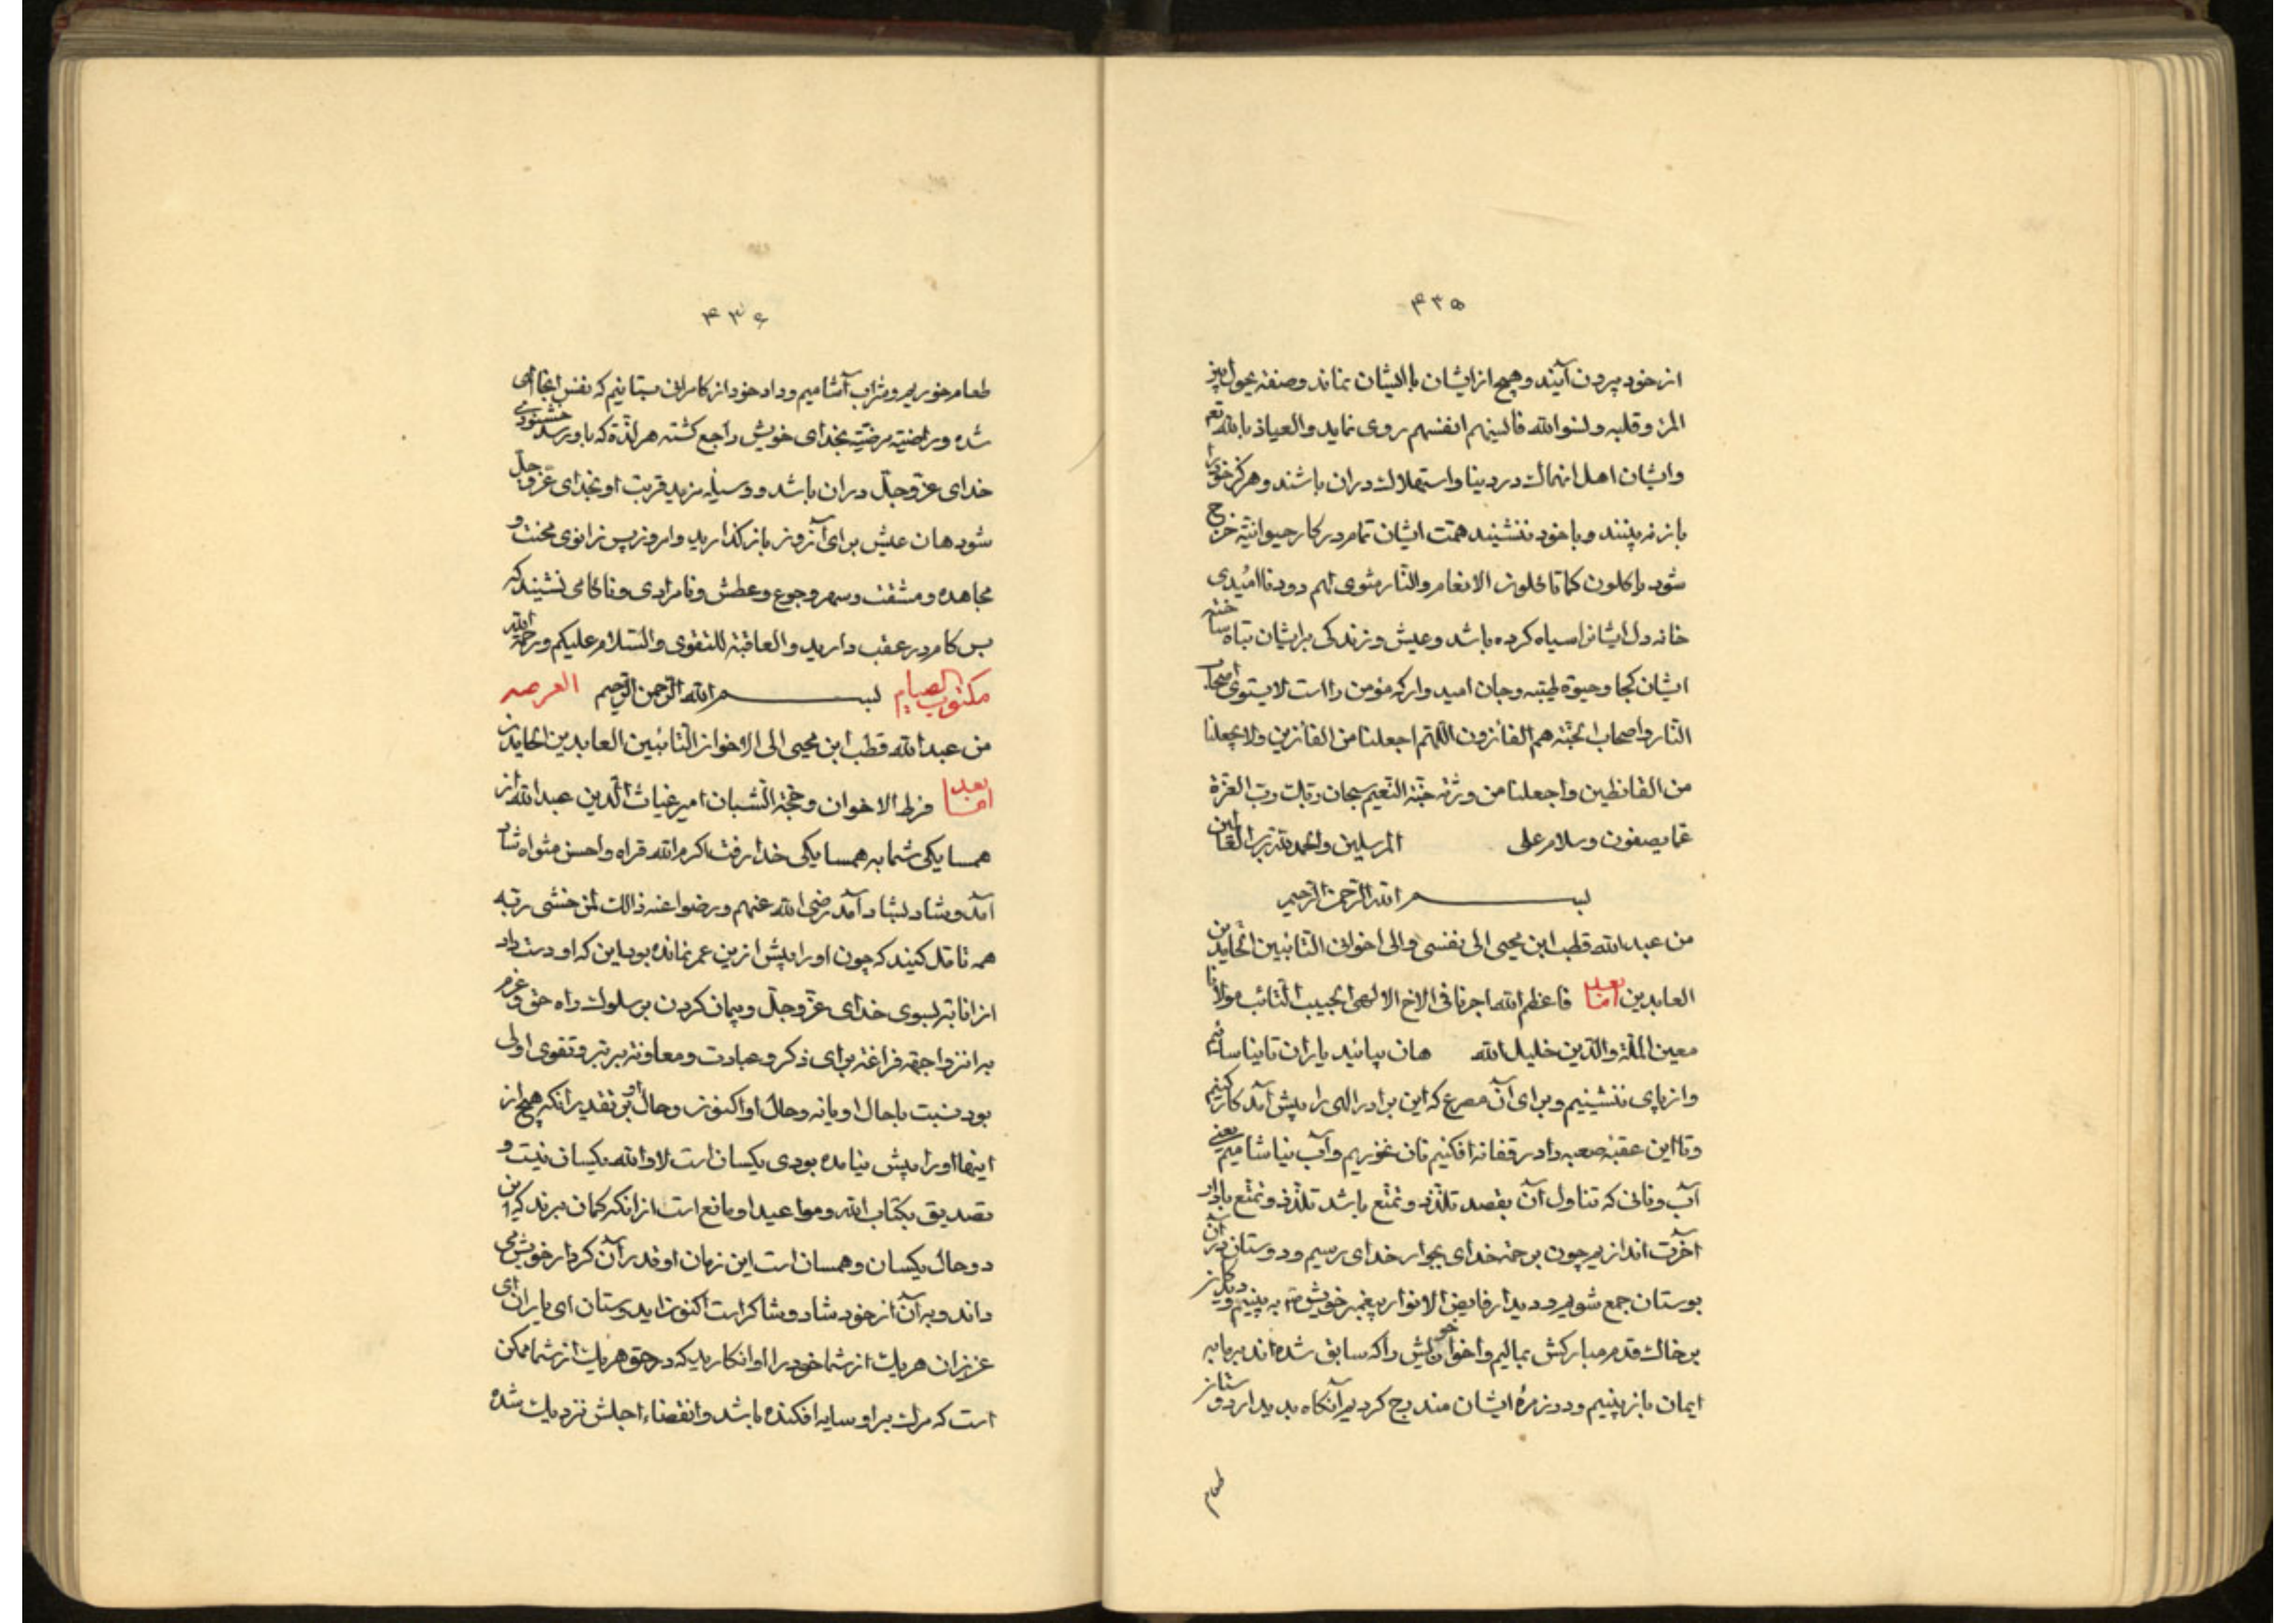 ۴۳۵
از خود بیرون آیند و هیچ از ایشان با ایشان نماند و صفة یحول بین
المرء و قلبه و نسوا الله فانسیهم انفسهم روی نماید و العیاذ بالله تعم
و ایشان اهل انهماک در دنیا و استهلاک در آن باشند و هرگز خود را
باز نه بینند و با خود ننشینند همت ایشان تمام در کار حیوانیة خرج
شود یاکلون کما تاکلون الانعام والنار مثوی لهم دود ناامیدی
خانه دل ایشانرا سیاه کرده باشد و عیش و زندگی بر ایشان تباه ساخته
ایشان کجا و حیوة طیبه و جان امیدوار که مؤمن راست لا یستوی اصحاب
النار و اصحاب الجنة هم الفائزون اللهم اجعلنا من الفائزین ولا تجعلنا
من القانطین واجعلنا من ورثة جنة النعیم سبحان ربک رب العزة
عما یصفون و سلام علی المرسلین والحمد لله رب العالمین
بسم الله الرحمن الرحیم
من عبد الله قطب ابن محیی الی نفسی و الی اخوانی التائبین الحامدین
العابدین اما بعد فاعظم الله اجرنا فی الاخ الالهی الحبیب التائب مولانا
معین الملة والدین خلیل الله هان بیائید یاران تا نیاسائیم
و از پای ننشینیم و برای آن مصرع که این برادر الهی را پیش آمد کار کنیم
و تا این عقبۀ صعبه را در قفا نه افکنیم نان نخوریم و آب نیاشامیم یعنی
آب و نانی که تناول آن بقصد تلذذ و تمتع باشد تلذذ و تمتع با دار
آخرت اندازیم چون برحمة خدای بجوار خدای رسیم و دوستان در آن
بوستان جمع شویم و دیدار فایض الانوار پیغمبر خویش ص به بینیم و دیده
بر خاک قدم مبارکش بمالیم و اخوان خویش را که سابق شده اند برما به
ایمان باز بینیم و در زمرۀ ایشان مندرج گردیم آنگاه بدیدار دوستان
طعام
۴۳۶
طعام خوریم و شراب آشامیم و داد خود از کامرانی بستانیم که نفس اینجا
شده و راضیة مرضیة بخدای خویش راجع گشته هر لذة که باو رسد خشنودی
خدای عز و جل در آن باشد و وسیله مزید قربت او بخدای عز و جل
شود هان عیش برای آنروز باز گذارید و امروز پس زانوی محنت و
مجاهده و مشقت و سهر و جوع و عطش و نامرادی و ناکامی نشیند که
بس کام در عقب دارید و العاقبة للتقوی و السلام علیکم و رحمة الله
مکتوب الصیام بسم الله الرحمن الرحیم
من عبد الله قطب ابن محیی الی الاخوان التائبین العابدین الحامدین
اما بعد فرط الاخوان و حجة الشبان امیر غیاث الدین عبد الله از
همسایگی شما به همسایگی خدا رفت اکرم الله قراه و احسن مثواه شاد
آمد و شاد بشاد آمد رضی الله عنهم و رضوا عنه ذالک لمن خشی ربه
همه تامل کنید که چون او را بیش ازین عمر نمانده بود این که او دست داد
از انابة بسوی خدای عز و جل و پیمان کردن بر سلوک راه حق و عزم
به انزوا جهة فراغة برای ذکر و عبادت و معاونة بر بر و تقوی اولی
بود نسبت باحال او یا نه و حال او اکنون و حال او بر تقدیر آنکه هیچ از
اینها او را پیش نیامده بودی یکسان است لا والله یکسان نیست و
تصدیق بکتاب الله و مواعید او مانع است از آنکه گمان برند که این
دو حال یکسان و همسان است این زمان او قدر آن کردار خویش می
داند و به آن از خود شاد و شاکر است اکنون ای دوستان ای یاران ای
عزیزان هر یک از شما خود را او انگارید که در حق هر یک از شما ممکن
است که مرگ بر او سایه افکنده باشد و انقضاء اجلش نزدیک شده